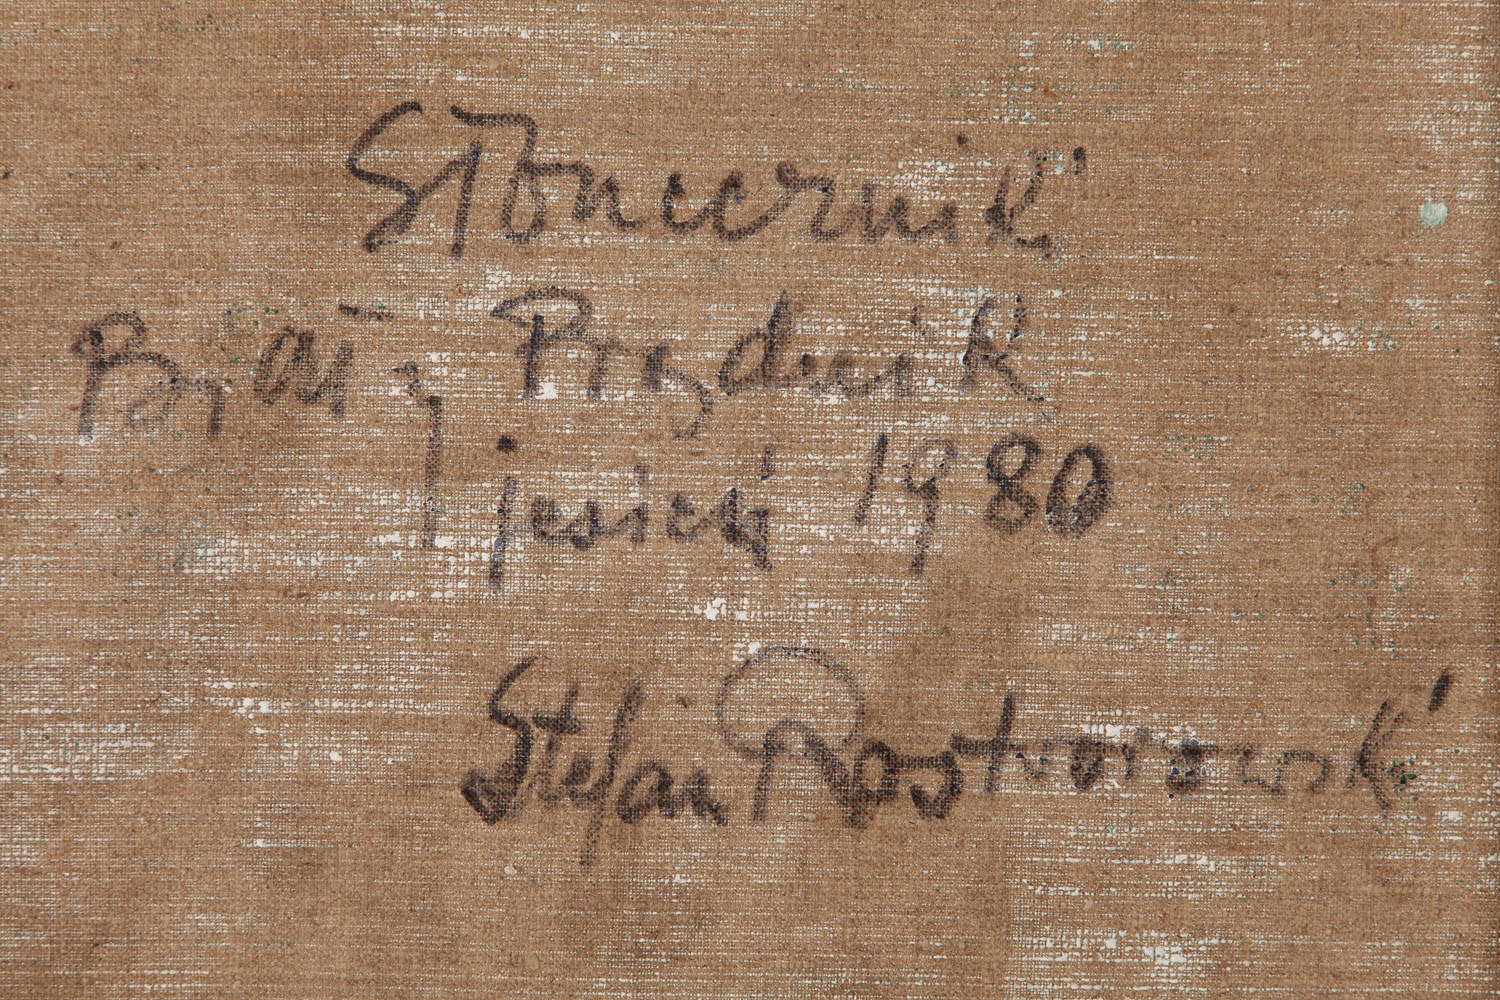 Słonecznik
Prądnik
jesień 1980
Stefan Rostworowski